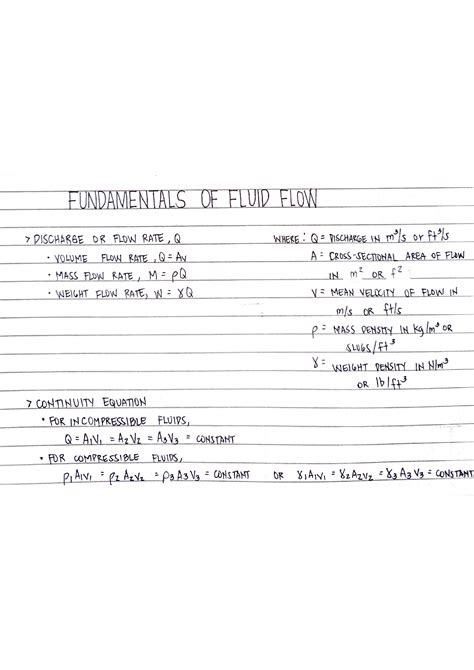 FUNDAMENTALS OF FLUID FLOW
> DISCHARGE OR FLOW RATE, Q
• VOLUME FLOW RATE, Q = Av
• MASS FLOW RATE, M = ρQ
• WEIGHT FLOW RATE, W = γQ
WHERE: Q = DISCHARGE IN m³/s or ft³/s
A = CROSS-SECTIONAL AREA OF FLOW
IN m² OR f²
V = MEAN VELOCITY OF FLOW IN
m/s OR ft/s
ρ = MASS DENSITY IN kg/m³ OR
SLUGS/ft³
γ = WEIGHT DENSITY IN N/m³
OR lb/ft³
> CONTINUITY EQUATION
• FOR INCOMPRESSIBLE FLUIDS,
Q = A₁V₁ = A₂V₂ = A₃V₃ = CONSTANT
• FOR COMPRESSIBLE FLUIDS,
ρ₁A₁V₁ = ρ₂A₂V₂ = ρ₃A₃V₃ = CONSTANT OR γ₁A₁V₁ = γ₂A₂V₂ = γ₃A₃V₃ = CONSTANT